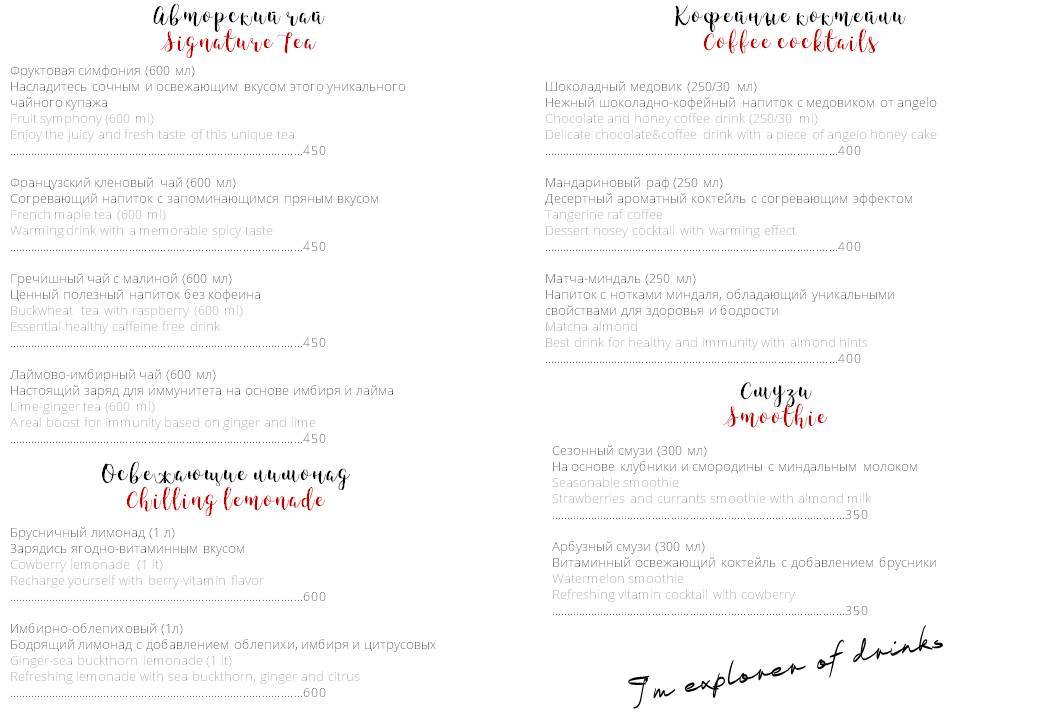 Авторский чай
Signature Tea
Фруктовая симфония (600 мл)
Насладитесь сочным и освежающим вкусом этого уникального
чайного купажа
Fruit symphony (600 ml)
Enjoy the juicy and fresh taste of this unique tea
......................................................................................450
Французский кленовый чай (600 мл)
Согревающий напиток с запоминающимся пряным вкусом
French maple tea (600 ml)
Warming drink with a memorable spicy taste
......................................................................................450
Гречишный чай с малиной (600 мл)
Ценный полезный напиток без кофеина
Buckwheat tea with raspberry (600 ml)
Essential healthy caffeine free drink
......................................................................................450
Лаймово-имбирный чай (600 мл)
Настоящий заряд для иммунитета на основе имбиря и лайма
Lime-ginger tea (600 ml)
A real boost for immunity based on ginger and lime
......................................................................................450
Освежающие лимонад
Chilling lemonade
Брусничный лимонад (1 л)
Зарядись ягодно-витаминным вкусом
Cowberry lemonade (1 lt)
Recharge yourself with berry-vitamin flavor
......................................................................................600
Имбирно-облепиховый (1л)
Бодрящий лимонад с добавлением облепихи, имбиря и цитрусовых
Ginger-sea buckthorn lemonade (1 lt)
Refreshing lemonade with sea buckthorn, ginger and citrus
......................................................................................600
Кофейные коктейли
Coffee cocktails
Шоколадный медовик (250/30 мл)
Нежный шоколадно-кофейный напиток с медовиком от angelo
Chocolate and honey coffee drink (250/30 ml)
Delicate chocolate&coffee drink with a piece of angelo honey cake
......................................................................................400
Мандариновый раф (250 мл)
Десертный ароматный коктейль с согревающим эффектом
Tangerine raf coffee
Dessert nosey cocktail with warming effect
......................................................................................400
Матча-миндаль (250 мл)
Напиток с нотками миндаля, обладающий уникальными
свойствами для здоровья и бодрости
Matcha almond
Best drink for healthy and immunity with almond hints
......................................................................................400
Смузи
Smoothie
Сезонный смузи (300 мл)
На основе клубники и смородины с миндальным молоком
Seasonable smoothie
Strawberries and currants smoothie with almond milk
......................................................................................350
Арбузный смузи (300 мл)
Витаминный освежающий коктейль с добавлением брусники
Watermelon smoothie
Refreshing vitamin cocktail with cowberry
......................................................................................350
I'm explorer of drinks